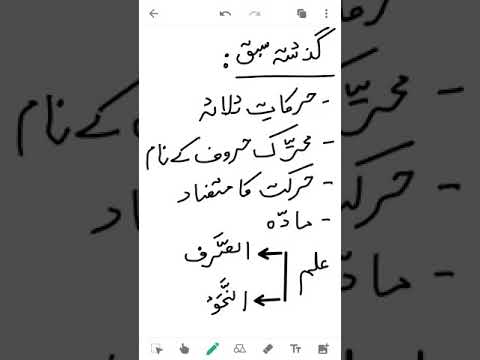 گذشتہ سبق :
- حرکاتِ ثلاثہ
- متحرّک حروف کے نام
- حرکت کا متضاد
- مادّہ
علم
الصَّرف
النَّحْو
Tт